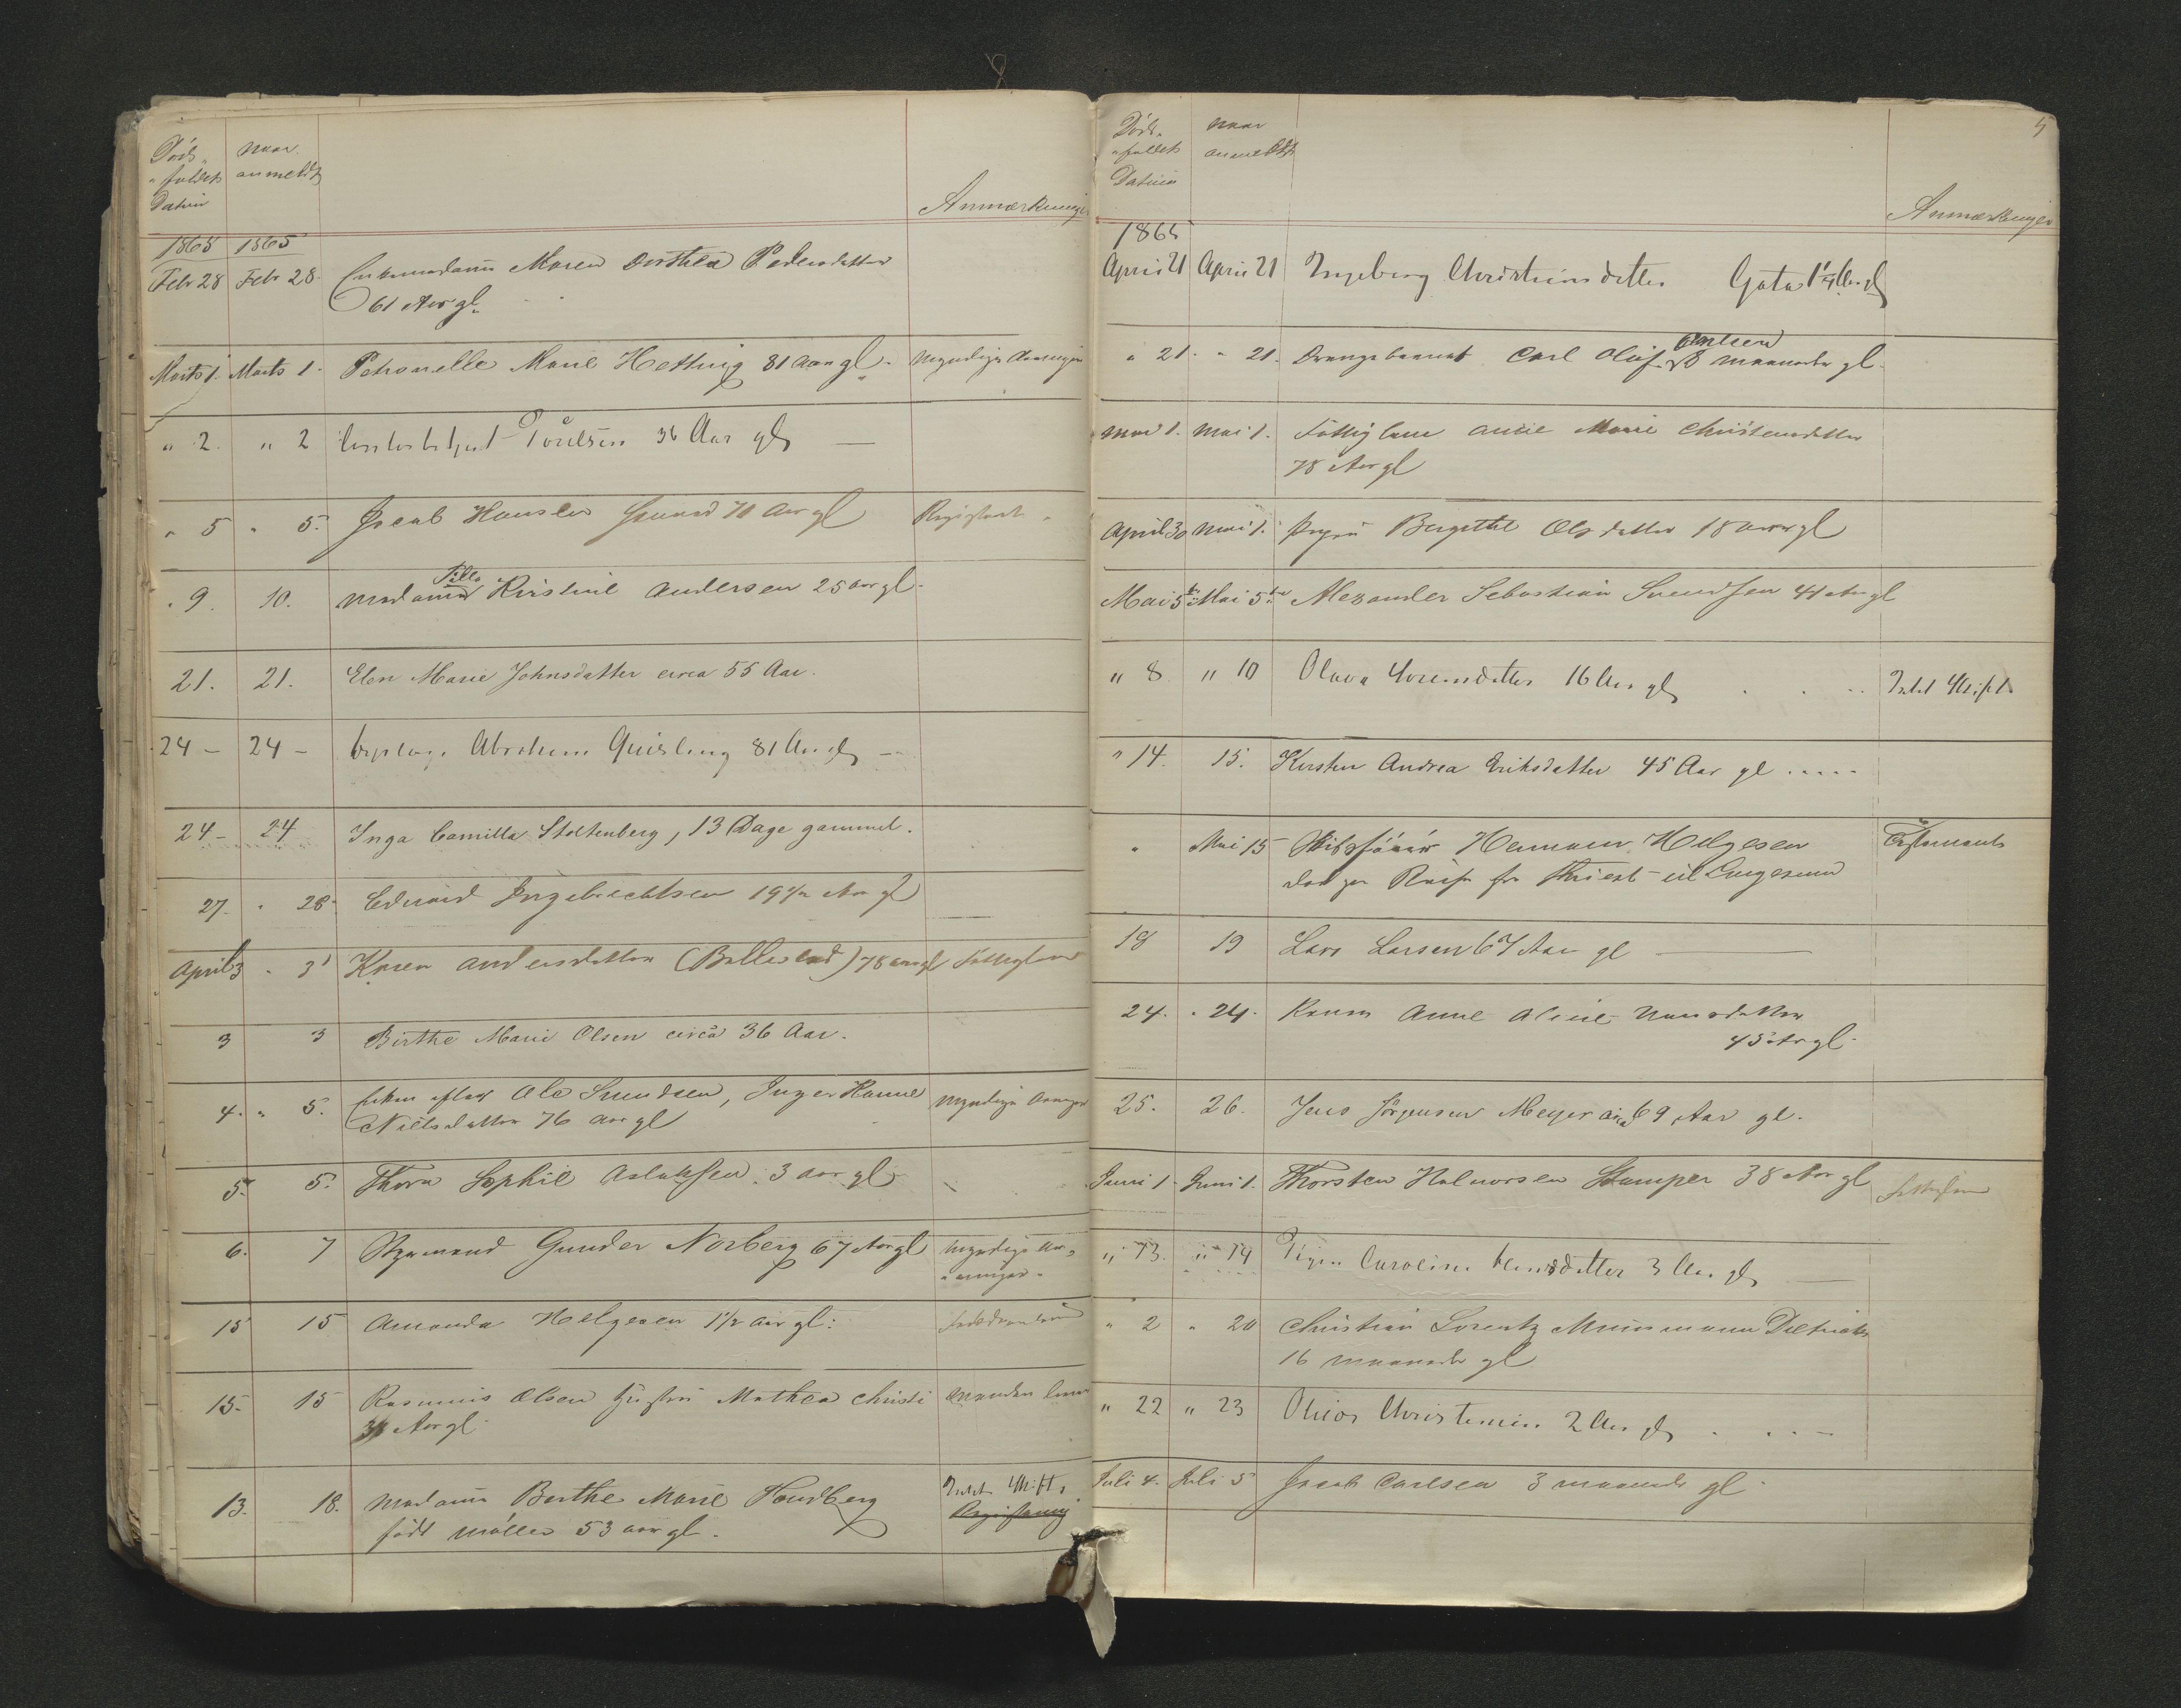 Døds-
faldets
Datum
naar
anmeldt
Anmærkninger
1865 1865
Febr 28 Febr 28. Enkemadam Maren Dorthea Pedersdatter
61 Aar gl.
Marts 1. Marts 1. Petronelle Marie Hettwig 81 Aar gl. Myndige Arvinger
" 2. " 2 36 Aar gl
" 5 " 5. Jacob Hansen 70 Aar gl Registrert
" 9. 10. Madame Kirstine Andersen 25 aar gl.
21. 21. Elen Marie Johnsdatter circa 55 Aar.
24 - 24 - Abraham Quisling 81 Aar gl
24 - 24 Inga Camilla Stoltenberg, 13 Dage gammel.
27. " 28. Edvard Ingebrechtsen 19 1/2 Aar gl
April 3 " 3 Karen Andersdatter 78 aar gl Fattiglem
3 3 Birthe Marie Olsen circa 36 Aar.
4. " 5. Enken efter Ole Svendsen, Inger Hanne Myndige Arvinger
Nielsdatter 76 aar gl
5. 5. Thora Sophie Aslaksen 3 aar gl
6. 7 Styrmand Gunder Norberg 67 Aar gl Myndige Ar-
vinger
15 15 Amanda Helgesen 1 1/2 aar gl.
15. 15 Rasmus Olsen Hustru Mathea Christi Manden lever
Aar gl
13. 18. Madame Berthe Marie Hindberg Intet Skifte
født Møller 53 aar gl. Registrering
5
Døds-
faldets
Datum
naar
anmeldt
Anmærkninger
1865
April 21 April 21 Ingeborg Christiansdatter Gata
" 21. " 21. Drengebarnet Carl Oluf 8 maaneder gl.
Mai 1. Mai 1. Fattiglem Anne Marie Christensdatter
78 Aar gl
April 30 Mai 1. Pigen Bergithe Olsdatter 18 aar gl
Mai 5te Mai 5te Alexander Sebastian Svendsen 41 Aar gl
" 8. " 10 Olava 16 Aar gl Intet Skifte
" 14. 15. Kirsten Andrea Eriksdatter 45 Aar gl
" Mai 15 Skibsfører Herman Helgesen Testamente
død paa Reise fra Triest til Langesund
18 19 Lars Larsen 67 Aar gl
24. " 24. Konen Anne Aline Hansdatter
45 Aar gl.
25. 26. Jens Jørgensen Meyer circa 69 Aar gl.
Juni 1 Juni 1. Thorsten Halvorsen Stamper 38 Aar gl Fattiglem
" 13. " 14 Pigen Caroline Hansdatter 3 Aar gl
" 2 " 20 Christian Lorentz Dietrichs
16 maaneder gl
" 22 " 23 2 Aar gl
Juli 4. Juli 5 Jacob Carlsen 3 maaneder gl.